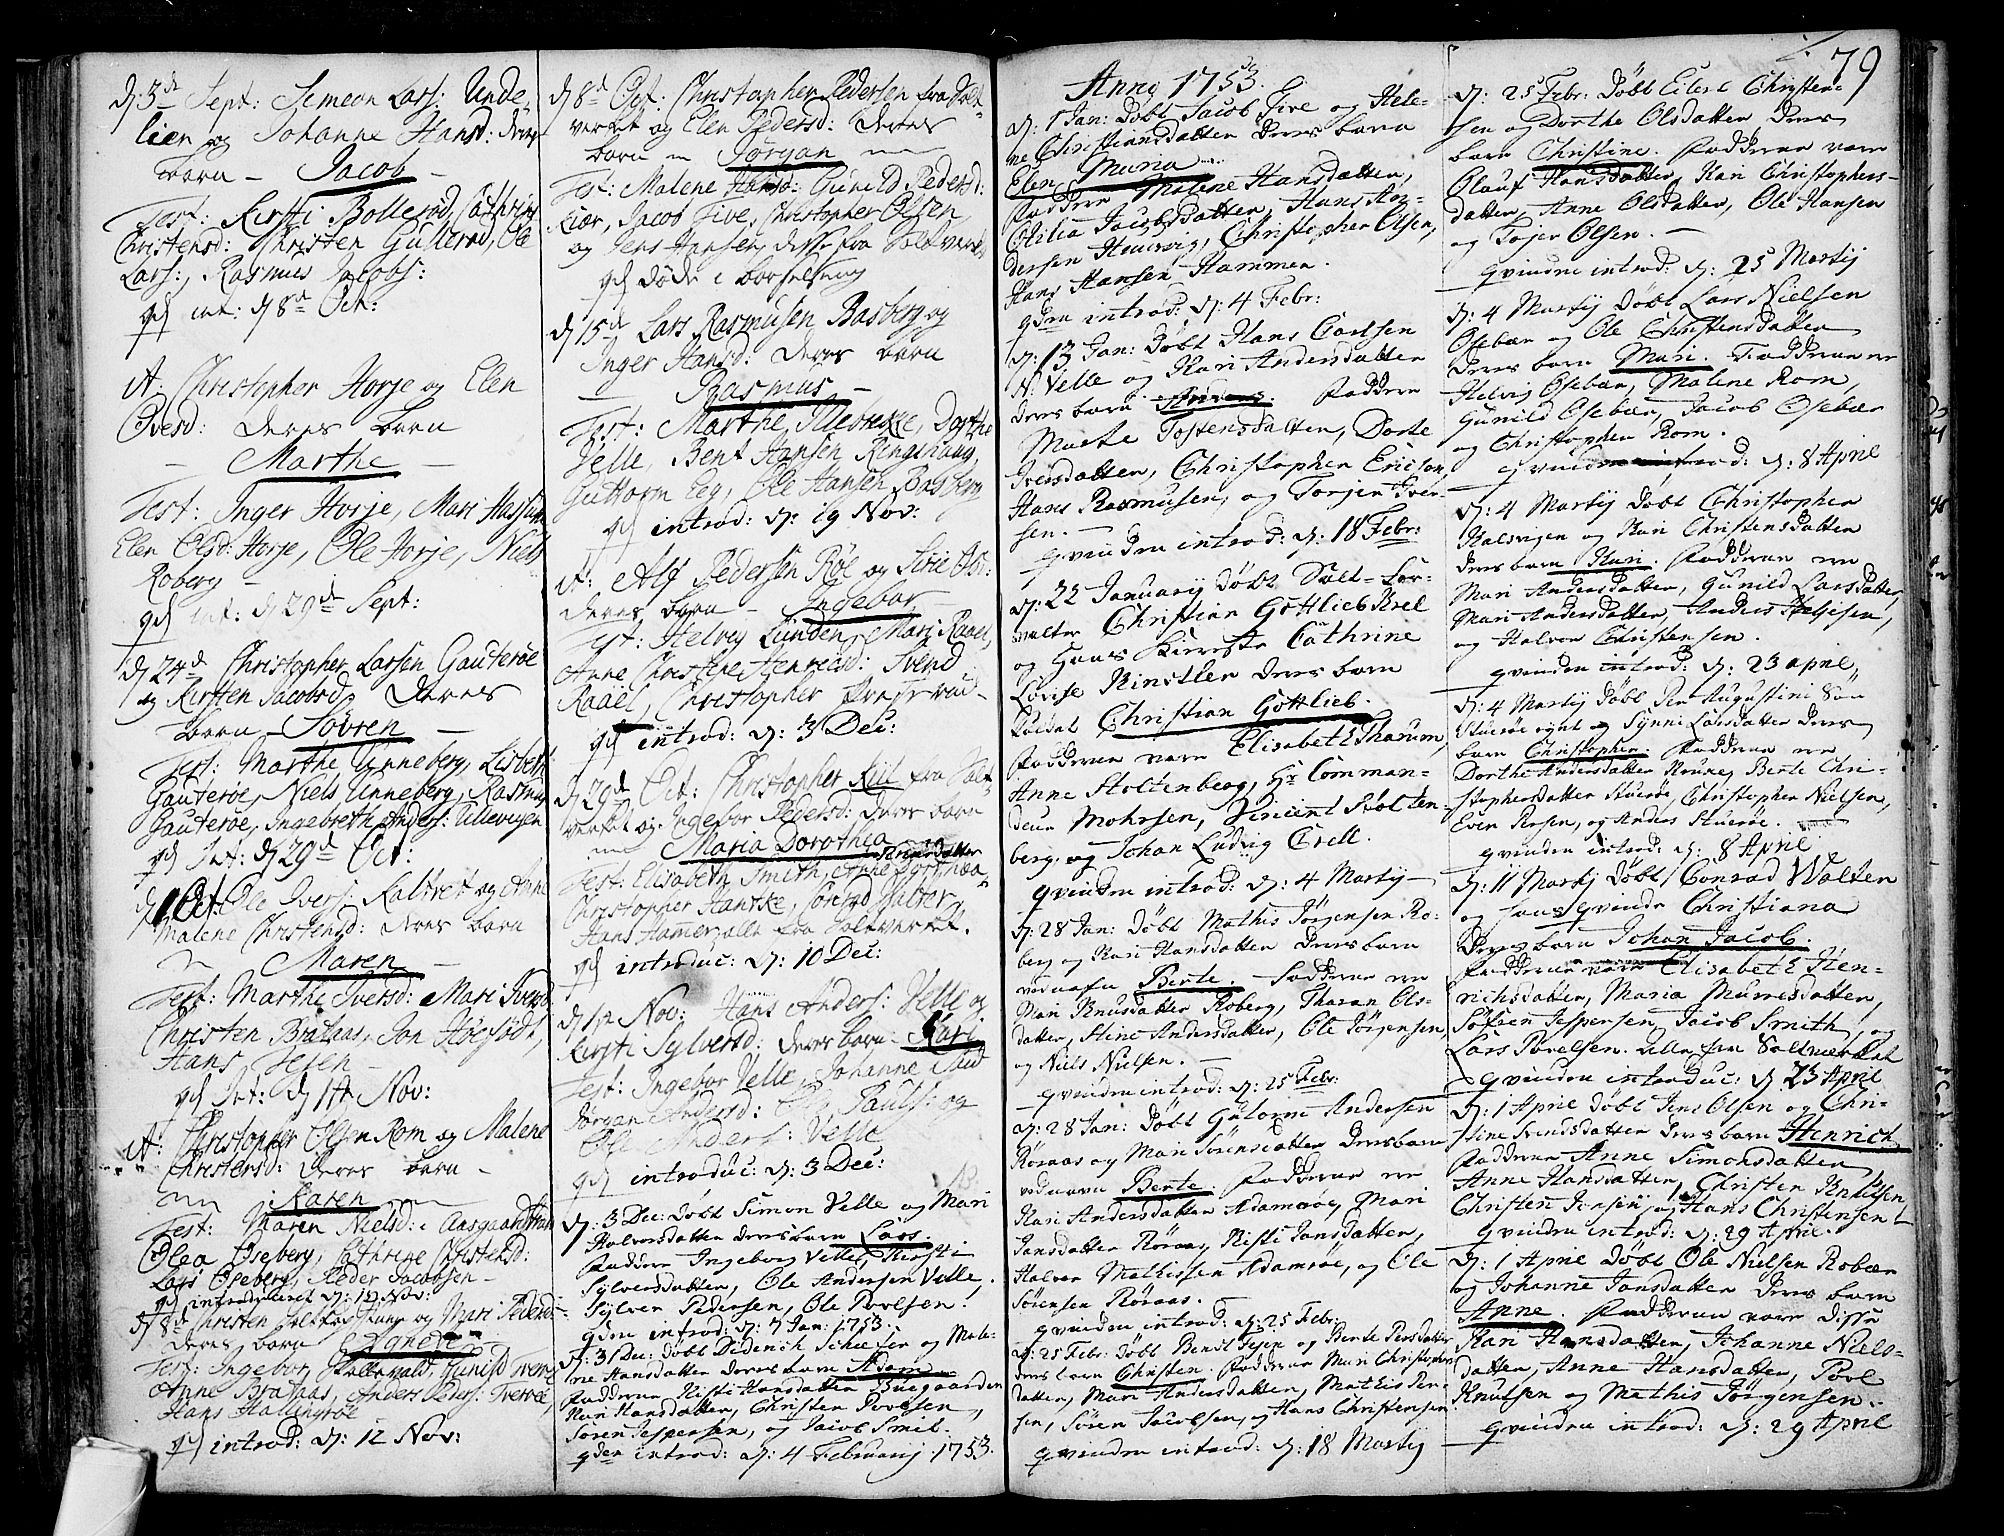 d. 3d Sept: Simeon Lars: Unde-
lien og Johanne Hansd: deres
barn — Jacob —
Test: Kirsti Bollerød, Cathrin
Christensd: Christen Gullerød, Ole
Lars:, Rasmus Jacobs:
qd int: d 8d Oct:
it: Christopher Horje og Elen
Ovesd: deres barn
— Marthe —
Test: Inger Horje, Mari
Elen Olsd: Horje, Ole Horje, Niels
Roberg —
qd int: d 29d Sept:
d 24d Christopher Larsen Gauterøe
og Kirsten Jacobsd, deres
barn — Søvren —
Test: Marthe Unneberg, Lisbeth
Gauterøe, Niels Unneberg, Rasmus
Gauterøe, Ingebreth Anders:
qd Int: d 29d Oct:
d 1 Oct: Ole Ivers: og Anne
Malene Christensd: deres barn
Maren —
Test: Marthe Iversd: Mari Iversd
Christen Brataas, Jon
Hans
qd Int: d 1t Nov:
it: Christopher Olsen Rom og Malene
Christensd: deres barn —
Karen
Test: Maren Nielsd: Aasgaardstran
Olea Oseberg, Cathrine Christensd:
Lars Oseberg, Peder Jacobsen —
qd introduceret d: 12 Nov:
d 8d Christen og Mari Pedersd:
deres barn Agnete
Test: Ingebor
Anne Brataas, Anders
Hans Hallingrøe
qd introd: d: 12 Nov:
d 8d Oct: Christopher Pedersen fra Salt-
verket og Elen Pedersd: deres
barn — Jørgan —
Test: Malene Hansd: Gunild Pedersd:
Kiær, Jacob Five, Christopher Olsen
og Jens Hansen, disse fra Saltverket
qd døde i barselseng
d 15d Lars Rasmusen Basberg og
Inger Hansd: deres barn
— Rasmus —
Test: Marthe Dorthe
Velle, Bent Hansen Ringshaug,
Guttorm Eeg, Ole Hansen Basberg
qd introd: d: 19 Nov:
it: Alf Pedersen Røe og Sirie
deres barn — Ingebor —
Test: Helvig Lunden, Mari Raael,
Anne Christine Henricsd: Svend
Raael, Christopher
qd introd: d: 3 Dec:
d 29d Oct: Christopher Kiil fra Salt-
verket og Ingebor Pedersd: deres barn
Maria Dorothea
Test: Elisabeth Smith, Anne
Christopher Hantke, Conrad Walter,
Hans fra Saltverket.
qd introduc: d: 10 Dec:
d 12 Nov: Hans Anders: Velle og
Kirsti Sylversd: deres barn — Kari
Test: Ingebor Velle, Johanne
Jørgan Andersd: Ole Pauls: og
Ole Anders: Velle
qd introduc: d: 3 Dec:
d: 3 Dec: Døbt Simon Velle og Mari
Halvorsdatter deres barn Lars.
Faddere Ingeborg Velle, Kirsti
Sylversdatter, Ole Andersen Velle,
Sylver Pedersen, Ole Povelsen.
qden introd: d: 7 Jan: 1753.
d: 31 Dec: Døbt Diderich og Male-
ne Hansdatter deres barn Adam
Fadderne Kisti Hansdatter Buegaarden
Kari Hansdatter, Christen Povelsen,
Søren Jespersen, og Jacob Smit.
qden introd: d: 4 Februarij 1753.
79
Anno 1753.
d: 1 Jan: Døbt Jacob Five og Hele-
ne Christiansdatter deres barn
Elen Maria
Faddere Malene Hansdatter,
Otilia Jacobsdatter, Hans
dersen Christopher Olsen,
Hans Hansen Hammer.
qden introd: d: 4 Febr:
d: 13 Jan: Døbt Hans Carlsen
N. Velle og Kari Andersdatter
deres barn Anders. Faddere
Marte Tostensdatter, Dorte
Iversdatter, Christopher Ericsen,
Hans Rasmusen, og Torjer Iver-
sen.
qvinden introd: d: 18 Febr:
d: 22 Januarij Døbt Salt-For-
valter Christian Gottlieb Krel
og Hans Kiereste Cathrine
Lovise Kinstler deres barn
kaldet Christian Gottlieb.
Faddere vare Elisabeth Tharum,
Anne Stoltenberg, Hr Comman-
deur Mohrsen, Vincent Stolten-
berg, og Johan Ludvig Crell.
qvinden introd: d: 4 Martij —
d: 28 Jan: Døbt Mathis Jørgensen Ro-
berg og Kari Hansdatter deres barn
ved nafn Berte — Fadderne ere
Mari Knusdatter Roberg, Tharan Ols-
datter, Stine Andersdatter, Ole Jørgensen,
og Niels Nielsen. —
qvinden introd: d: 25 Febr:
d: 28 Jan: Døbt Gutorm Andersen
Røraas og Mari Sørensdatter deres barn
ved navn Berte. Fadderne ere
Kari Andersdatter Adamrøe, Mari
Jansdatter Røraas, Kisti Jansdatter,
Halvor Mathissen Adamrøe, og Ole
Sørensen Røraas.
qvinden introd: d: 25 Febr:
d: 25 Febr: Døbt Bendt og Berte Persdatter
deres barn Christen. Fadderne Mari Christophers-
datter, Mari Andersdatter, Mathis Per-
sen, Søren Jacobsen, og Hans Christensen
qvinden introd: d: 18 Martij
d: 25 Febr: Døbt Eilert Christen-
sen og Dorthe Olsdatter deres
barn Christine. Fadderne vare
Olauf Hansdatter, Kari Christophers-
datter, Anne Olsdatter, Ole Hansen
og Tojer Olsen. —
qvinden introd: d: 25 Martij
d: 4 Martij Døbt Lars Nielsen
Osebær og Ole Christensdatter
deres barn Mari. Fadderne ere
Helvig Osebær, Malene Rom,
Gunild Osebær, Jacob Osebær
og Christopher Rom.
qvinden introd: d: 8 April
d: 4 Martij Døbt Christopher
Halvorsen og Kari Christensdatter
deres barn Kari. Fadderne ere
Mari Andersdatter, Gunild Larsdatter,
Mari Andersdatter, Anders
og Halvor Christensen.
qvinden introd: d: 23 april,
d: 4 Martij Døbt Per Augustini Søn
Stuerøe og Synni Larsdatter deres
barn Christopher. Fadderne ere
Dorthe Andersdatter Berte Chri-
stophersdatter Stuerøe, Christopher Nielsen,
Even Persen, og Anders Stuerøe.
qvinden introd: d: 8 April
d: 11 Martij Døbt Conrad Walter
og hans qvinde Christiana
deres barn Johan Jacob.
Fadderne vare Elisabeth Hen-
richsdatter, Maria
Søfren Jespersen, Jacob Smith, og
Lars Povelsen. Alle fra Saltværket
qvinden introduc: d. 23 April
d: 1 April Døbt Jens Olsen og Chri-
stine Svendsdatter deres barn Henrich
Faddere Anne Simonsdatter
Anne Hansdatter, Christen Knudsen
Christen Jensen, og Hans Christensen
qvinden introd: d: 29 April.
d: 1 April Døbt Ole Nielsen Robær
og Johanne Jansdatter deres barn
Anne. Fadderne vare disse
Kari Hansdatter, Johanne Niels-
datter, Anne Hansdatter, Povl
Knutsen og Mathis Jørgensen.
qvinden introd: d: 29 April